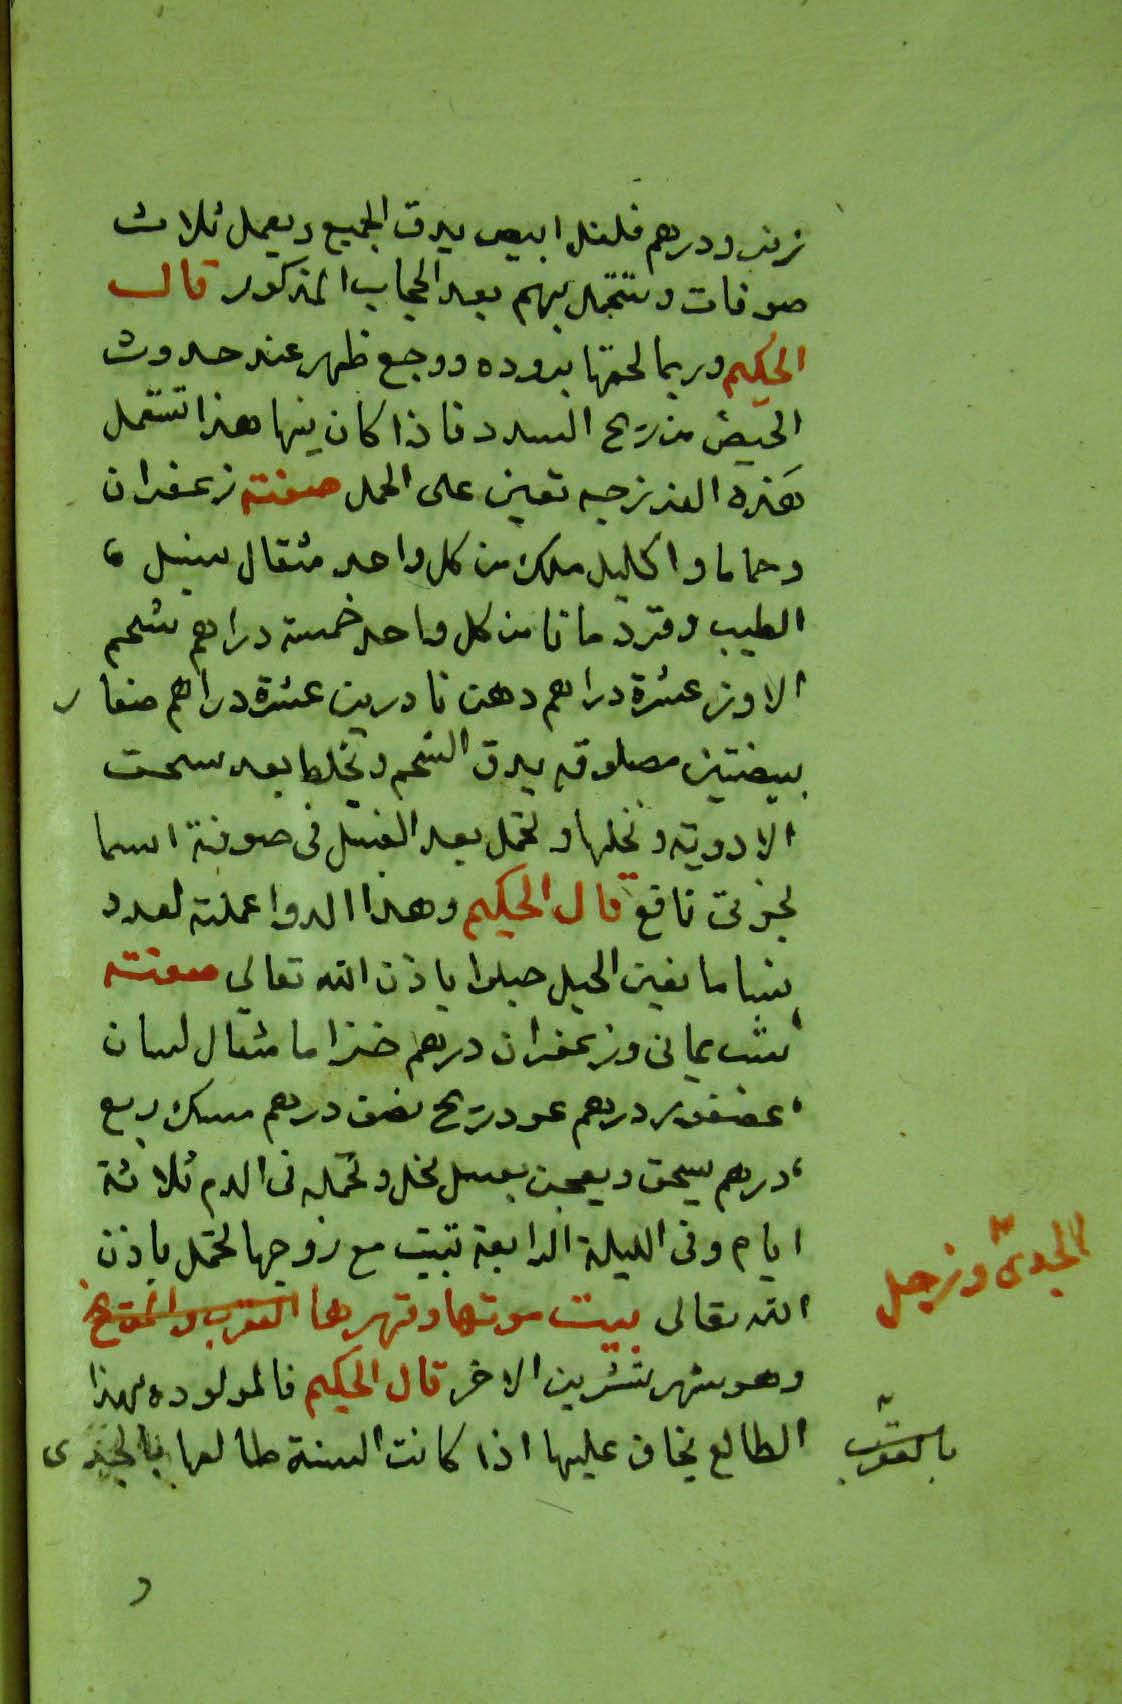 ودرهم فلفل ابيض يدق الجميع ويعمل ثلاث
صوفات وتتحمل بهم بعد الحجاب المذكور قال
الحكيم وربما لحقها بروده ووجع ظهر عند حدوث
الحيض من ريح السدد فاذا كان بها هذا تستعمل
هذه الفرزجه تعين على الحمل صفته زعفران
وحماما واكليل ملك من كل واحد مثقال سنبل
الطيب وقردمانا من كل واحد خمسة دراهم شحم
الاوز عشرة دراهم دهن ناردين عشرة دراهم صفار
بيضتين مصلوقه يدق الشحم ويخلط بعد سحق
الادوية ونخلها وتحمل بعد الغسل في صوفة اسما
نجونى نافع قال الحكيم وهذا الدوا عملته لعدد
نسا ما بقين الحبل حبلوا باذن الله تعالي صفته
شب يماني وزعفران درهم خزاما مثقال لسان
عصفور درهم عود ريح نصف درهم مسك ربع
درهم يسحق ويعجن بعسل نحل وتحمله في الدم ثلاثة
ايام وفي الليلة الرابعة تبيت مع زوجها تحمل باذن
الله تعالى بيت موتها وقهرها العقرب والمريخ
الجدي وزحل
وهو شهر تشرين الاخر قال الحكيم فالمولوده بهذا
الطالع يخاف عليها اذا كانت السنة طالعها بالجدى
بالعقرب
و